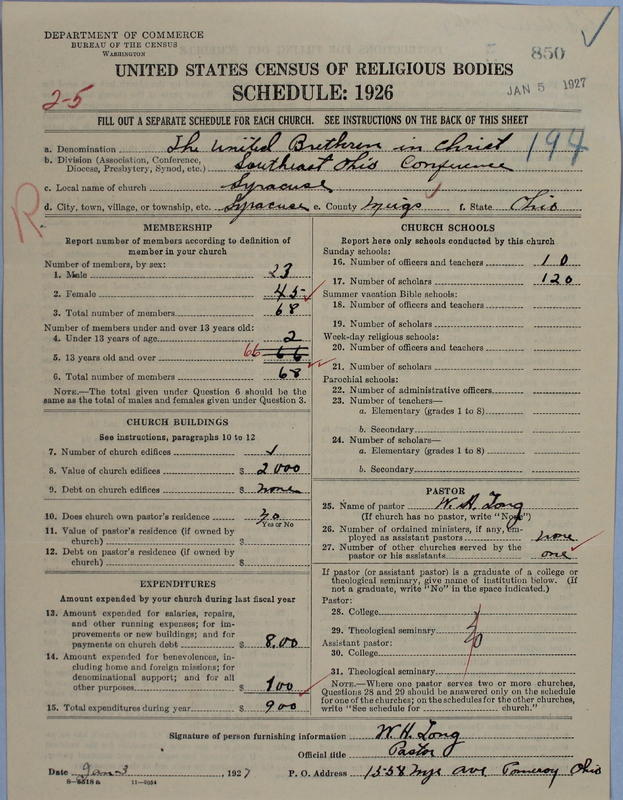 DEPARTMENT OF COMMERCE
BUREAU OF THE CENSUS
WASHINGTON
850
UNITED STATES CENSUS OF RELIGIOUS BODIES
JAN 5 1927
2-5
SCHEDULE: 1926
FILL OUT A SEPARATE SCHEDULE FOR EACH CHURCH. SEE INSTRUCTIONS ON THE BACK OF THIS SHEET
a. Denomination The United Brethren in Christ
194
b. Division (Association, Conference, Diocese, Presbytery, Synod, etc.) Southeast Ohio Conference
c. Local name of church Syracuse
d. City, town, village, or township, etc. Syracuse e. County Meigs f. State Ohio
R
MEMBERSHIP
Report number of members according to definition of
member in your church
Number of members, by sex:
1. Male 23
2. Female 45
3. Total number of members 68
Number of members under and over 13 years old:
4. Under 13 years of age 2
5. 13 years old and over 66 66
6. Total number of members 68
NOTE.—The total given under Question 6 should be
the same as the total of males and females given under Question 3.
CHURCH BUILDINGS
See instructions, paragraphs 10 to 12
7. Number of church edifices 1
8. Value of church edifices $ 2000
9. Debt on church edifices $ none
10. Does church own pastor's residence no
Yes or No
11. Value of pastor's residence (if owned by
church) $
12. Debt on pastor's residence (if owned by
church) $
EXPENDITURES
Amount expended by your church during last fiscal year
13. Amount expended for salaries, repairs,
and other running expenses; for im-
provements or new buildings; and for
payments on church debt $ 8.00
14. Amount expended for benevolences, in-
cluding home and foreign missions; for
denominational support; and for all
other purposes $ 100
15. Total expenditures during year $ 900
CHURCH SCHOOLS
Report here only schools conducted by this church
Sunday schools:
16. Number of officers and teachers 10
17. Number of scholars 120
Summer vacation Bible schools:
18. Number of officers and teachers
19. Number of scholars
Week-day religious schools:
20. Number of officers and teachers
21. Number of scholars
Parochial schools:
22. Number of administrative officers
23. Number of teachers—
a. Elementary (grades 1 to 8)
b. Secondary
24. Number of scholars—
a. Elementary (grades 1 to 8)
b. Secondary
PASTOR
25. Name of pastor W. H. Long
(If church has no pastor, write "None")
26. Number of ordained ministers, if any, em-
ployed as assistant pastors none
27. Number of other churches served by the
pastor or his assistants one
If pastor (or assistant pastor) is a graduate of a college or
theological seminary, give name of institution below. (If
not a graduate, write "No" in the space indicated.)
Pastor:
28. College
29. Theological seminary
No
Assistant pastor:
30. College
31. Theological seminary
NOTE.—Where one pastor serves two or more churches,
Questions 28 and 29 should be answered only on the schedule
for one of the churches; on the schedules for the other churches,
write "See schedule for church."
Signature of person furnishing information W. H. Long
Official title Pastor
Date Jan 3, 1927 P. O. Address 1558 Nye ave Pomeroy Ohio
8-5518a 11-9054